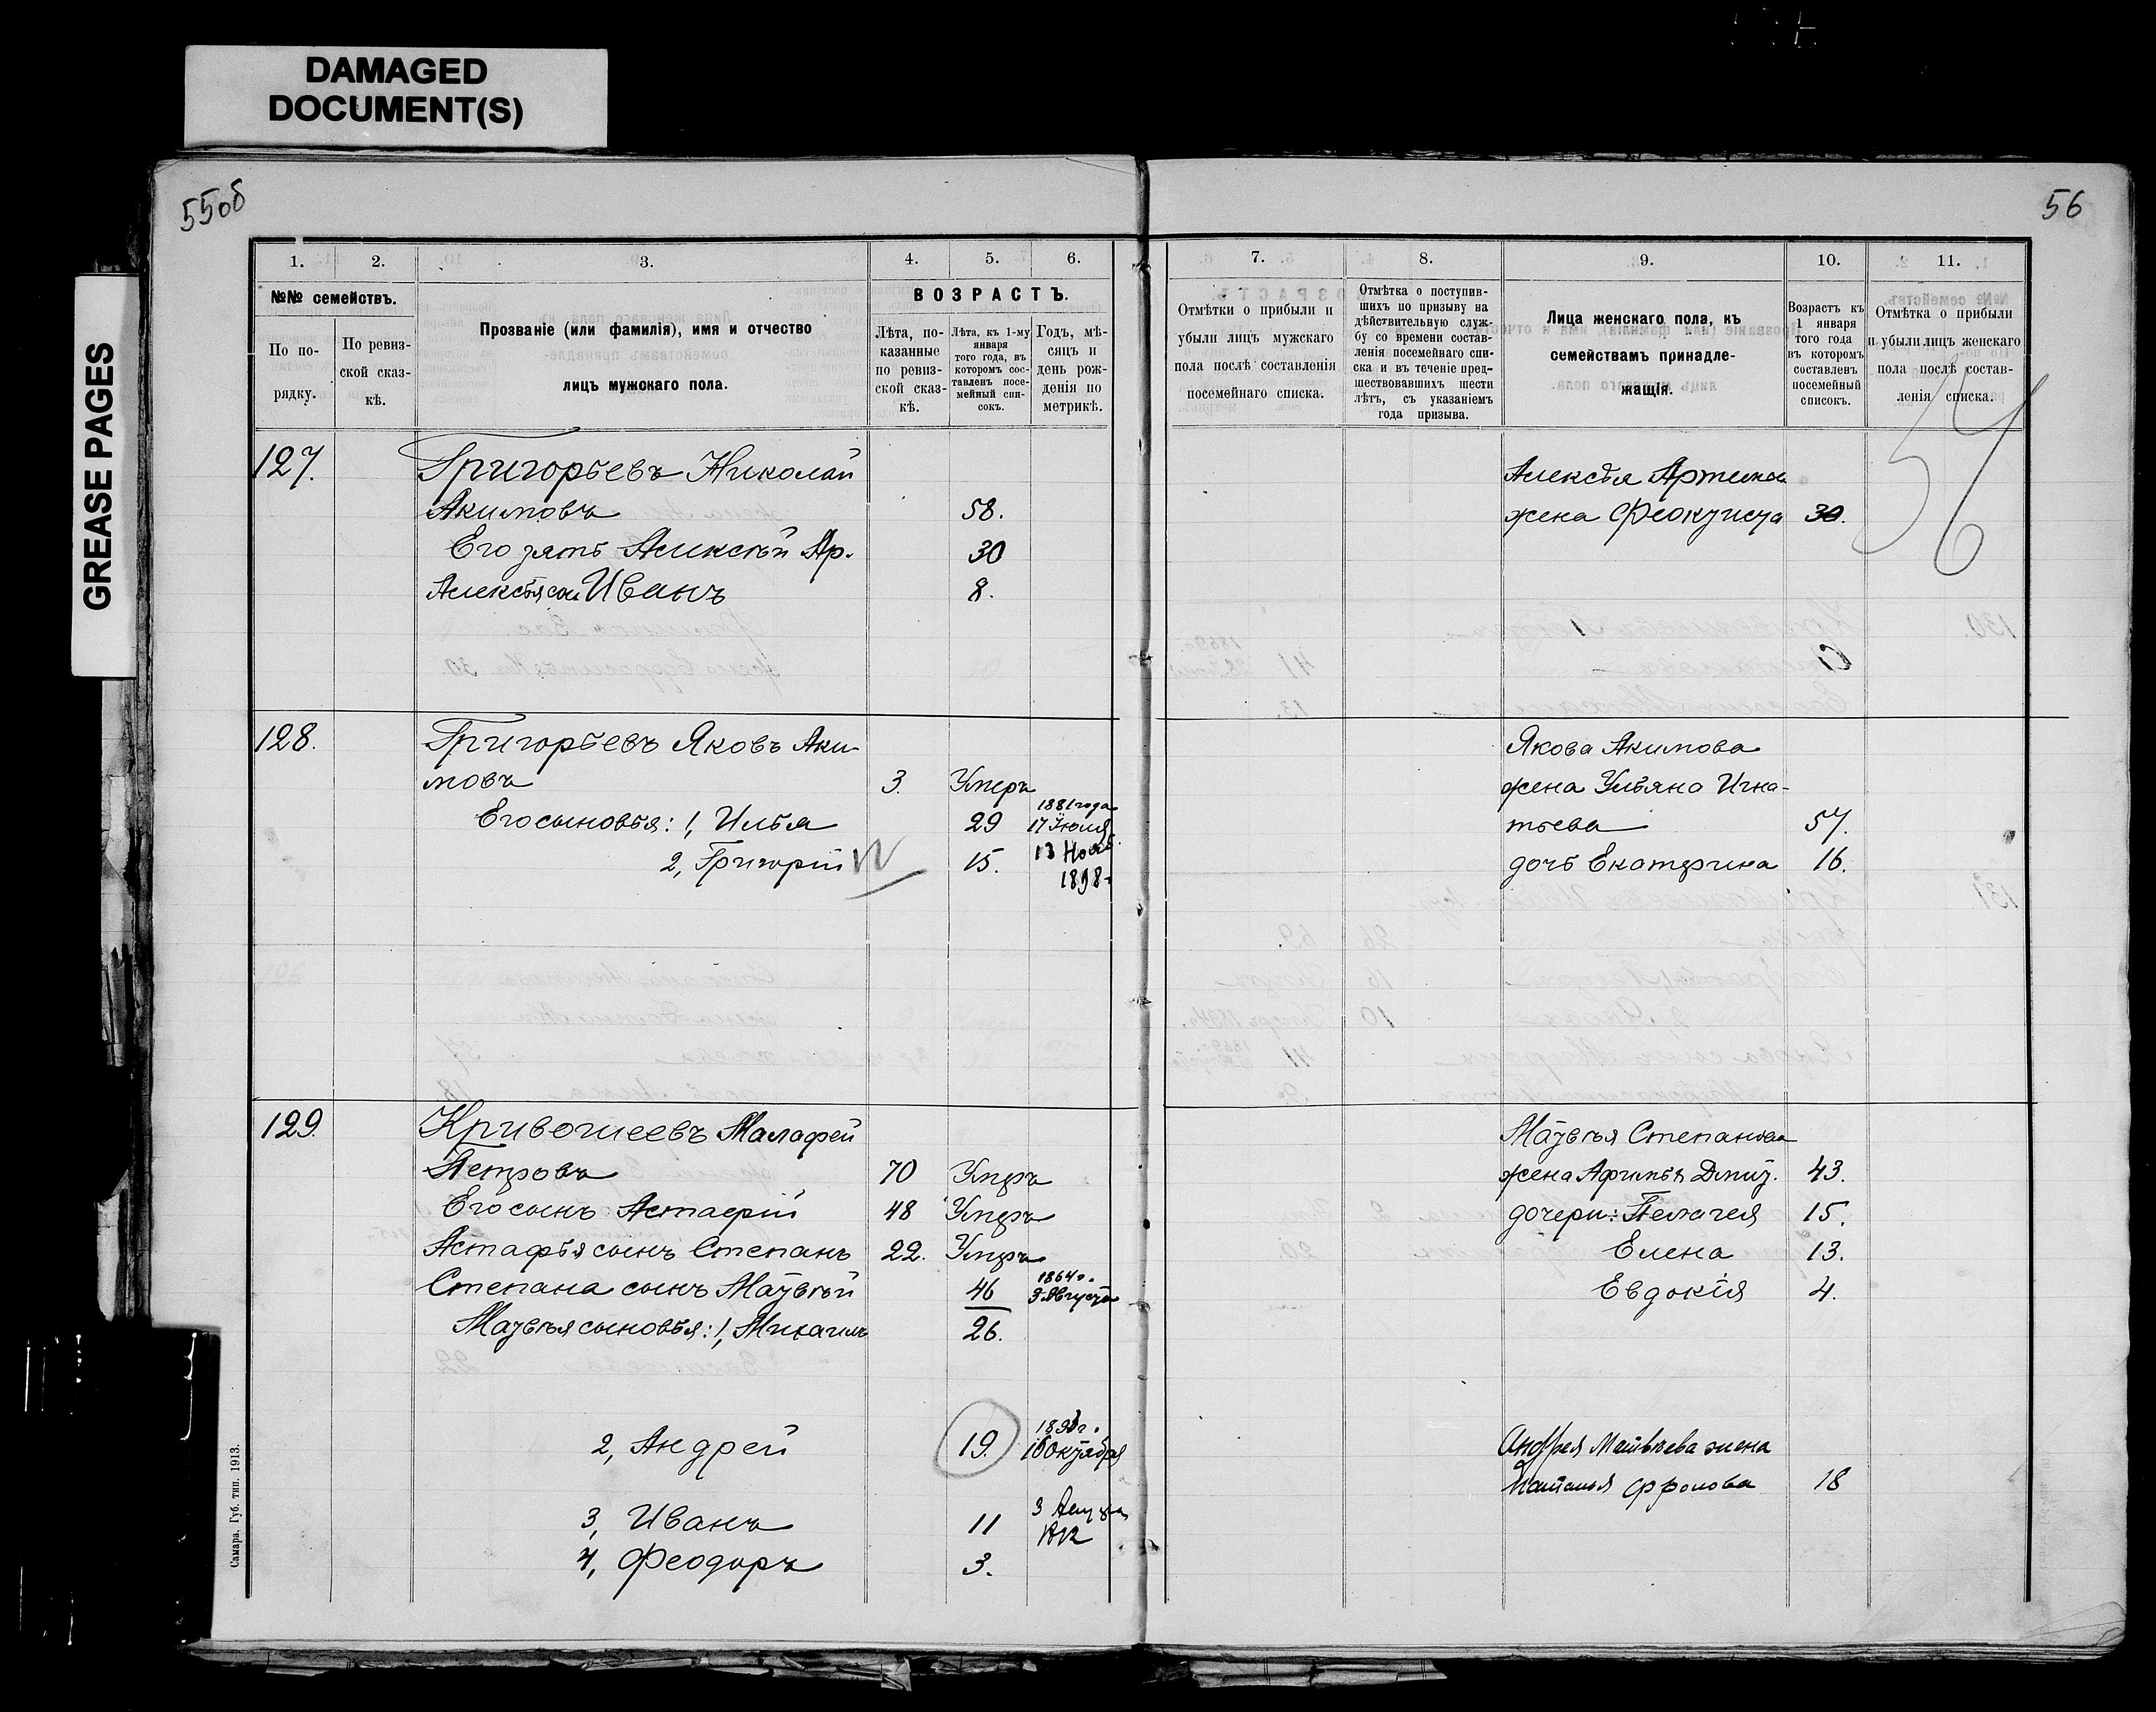 DAMAGED
DOCUMENT(S)
GREASE PAGES
55об
56
1.
2.
3.
4.
5.
6.
№№ семействъ.
По по-
рядку.
По ревиз-
ской сказ-
кѣ.
Прозваніе (или фамилія), имя и отчество
лицъ мужскаго пола.
ВОЗРАСТЪ.
Лѣта, по-
казанные
по ревиз-
ской сказ-
кѣ.
Лѣта, къ 1-му
января
того года, въ
которомъ сос-
тавленъ посе-
мейный спи-
сокъ.
Годъ, мѣ-
сяцъ и
день рож-
денія по
метрикѣ.
7.
8.
9.
10.
11.
Отмѣтки о прибыли и
убыли лицъ мужскаго
пола послѣ составленія
посемейнаго списка.
Отмѣтка о поступив-
шихъ по призыву на
дѣйствительную служ-
бу со времени состав-
ленія посемейнаго спи-
ска и въ теченіе пред-
шествовавшихъ шести
лѣтъ, съ указаніемъ
года призыва.
Лица женскаго пола, къ
семействамъ принадле-
жащія.
Возрастъ къ
1 января
того года
въ которомъ
составленъ
посемейный
списокъ.
Отмѣтка о прибыли
и убыли лицъ женскаго
пола послѣ состав-
ленія списка.
56
127. Григорьевъ Николай
Акимовъ 58.
Его зять Алексѣй Ар. 30
Алексѣя сын Иванъ 8.
Алексѣя
жена Феоктиста 30.
128. Григорьевъ Яковъ Аки-
мовъ 3. Умеръ
Его сыновья: 1, Илья 29 1881 года 17 Іюля
2, Григорій 15. 13 Нояб. 1898
Якова Акимова
жена Ульяна Игна-
тьева 57.
дочь Екатерина 16.
129. Кривошеевъ Малафей
Петровъ 70 Умеръ
Его сынъ Астафій 48 Умеръ
Астафья сынъ Степанъ 22. Умеръ
Степана сынъ Матвѣй 46 1864 г. 3 Августа
Матвѣя сыновья: 1, Михаилъ 26.
2, Андрей 19. Октября
3, Иванъ 11 3
4, Феодоръ 3.
Матвѣя Степанова
жена Афимья Дмит. 43.
дочери: Пелагея 15.
Елена 13.
Евдокія 4.
Андрея Матвѣева жена
Наталья Фролова 18
Самара, Губ. тип. 1913.